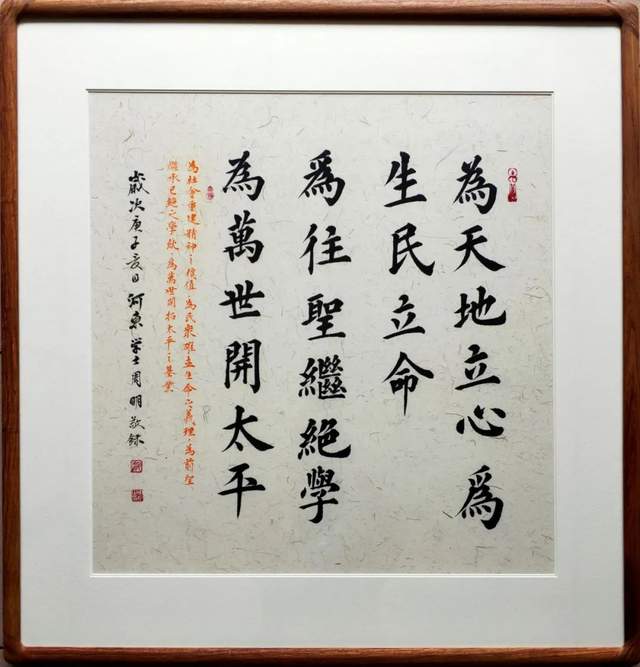 為天地立心為
生民立命
為往聖繼絕學
為萬世開太平
為社會重建精神之價值為民眾確立生命之義理為前聖
繼承已絕之學統為萬世開拓太平之基業
歲次庚子夏日河東學士周明敬録